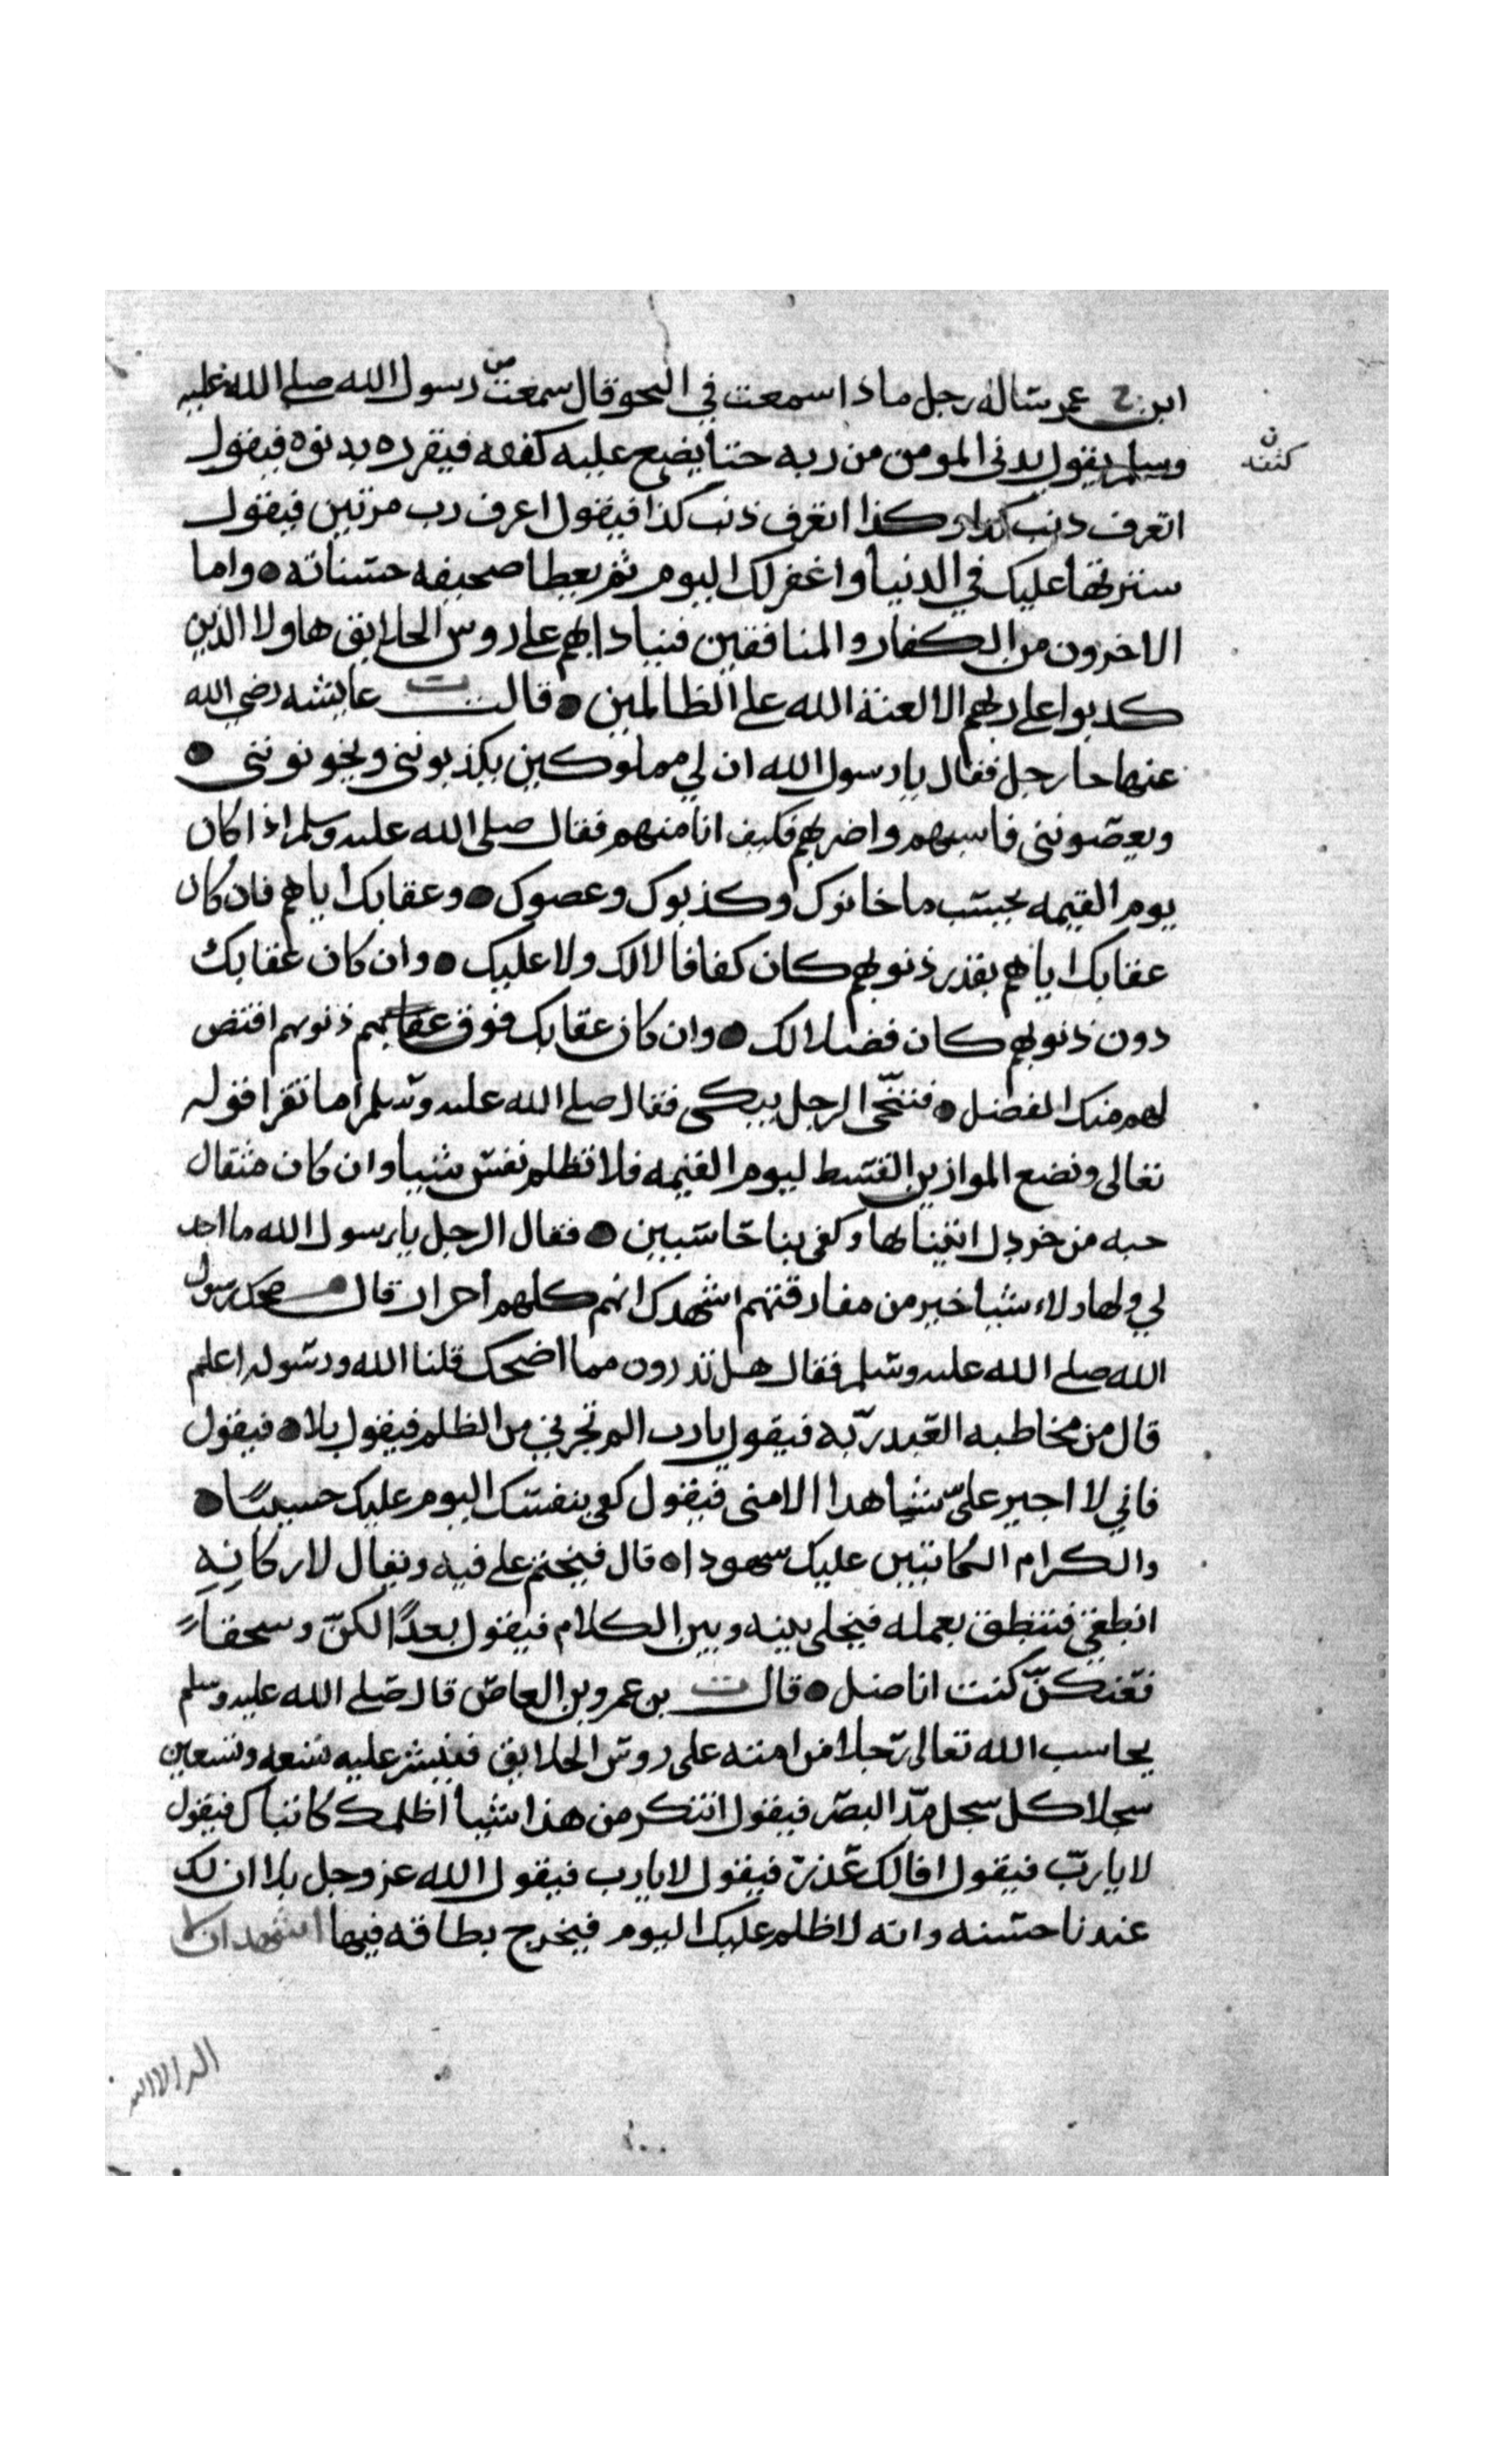 ابن عمر ساله رجل ماذا سمعت في النجو قال سمعت من رسول الله صلى الله عليه
وسلم يقول يدنى المومن من ربه حتا يضع عليه كنفه فيقرره بدنوه فيقول
كنفه ن
اتعرف دنب كذا وكذا اتعرف ذنب كذا فيقول اعرف رب مرتين فيقول
سترتها عليك في الدنيا واغفر لك اليوم ثم يعطا صحيفه حسناته ● واما
الاخرون من الكفار والمنافقين فينادا بهم على روس الخلايق هاولا الذين
كدبوا على ربهم الا لعنة الله على الظالمين ● قالت عايشه رضي الله
عنها جا رجل فقال يا رسول الله ان لي مملوكين يكذبونني ويخونونني ●
ويعصونني فاسبهم واضربهم فكيف انا منهم فقال صلى الله عليه وسلم اذا كان
يوم القيمه يحسب ما خانوك وكذبوك وعصوك ● وعقابك اياهم فان كان
عقابك اياهم بقدر ذنوبهم كان كفافا لا لك ولا عليك ● وان كان عقابك
دون ذنوبهم كان فضلا لك ● وان كان عقابك فوق ذنوبهم اقتص
لهم منك الفضل ● فتنحّى الرجل يبكي فقال صلى الله عليه وسلم اما تقرا قوله
تعالى ونضع الموازين القسط ليوم القيمه فلا تظلم نفس شيا وان كان مثقال
حبه من خردل اتينا بها وكفى بنا حاسبين ● فقال الرجل يا رسول الله ما اجد
لي ولهاولاء شيا خير من مفارقتهم اشهدك انهم كلهم احرار قال ضحك رسول
الله صلى الله عليه وسلم فقال هل تدرون مما اضحك قلنا الله ورسوله اعلم
قال من مخاطبه العبد ربّه فيقول يا رب الم تجرني من الظلم فيقول بلا ● فيقول
فاني لا اجير علىّ شاهدا الا منى فيقول كفى بنفسك اليوم عليك حسيبًا ●
والكرام الكاتبين عليك سهودا ● قال فيختم على فيه ويقال لاركانه
انطقي فتنطق بعمله فيخلى بينه وبين الكلام فيقول بعدًا لكنّ وسحقاً
فعنكنّ كنت اناضل ● قال بن عمرو بن العاص قال صلى الله عليه وسلم
يحاسب الله تعالى رجلا من امته على روس الخلايق فينشر عليه تسعه وتسعين
سجلا كل سجل مدّ البصر فيقول اتنكر من هذا شيا اظلمك كاتباك فيقول
لا يا ربّ فيقول افالك عذر فيقول لا يا رب فيقول الله عز وجل بلا ان لك
عندنا حسنه وانه لا ظلم عليك اليوم فيخرج بطاقه فيها اشهد ان لا
اله الا الله